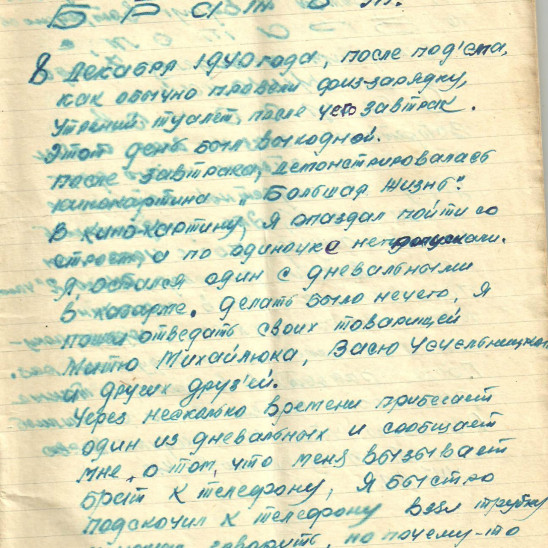 Брат В. М.
8 декабря 1940 года, после под'ема,
как обычно провели физзарядку,
утрений туалет, после чего завтрак.
Этот день был выходной.
После завтрака, демонстрировалась
кинокартина „Большая жизнь".
В кино-картину, я опаздал пойти со
строем, а по одиночке не допускали.
Я остался один с дневальными
в казарме. Делать было нечего, я
пошел отведать своих товарищей
Митю Михайлюка, Васю
и других друз'ей.
Через несколько времени прибегает
один из дневальных и сообщает
мне, о том, что меня вызывает
брат к телефону, я быстро
подскочил к телефону взял трубку
говорить, но почему-то